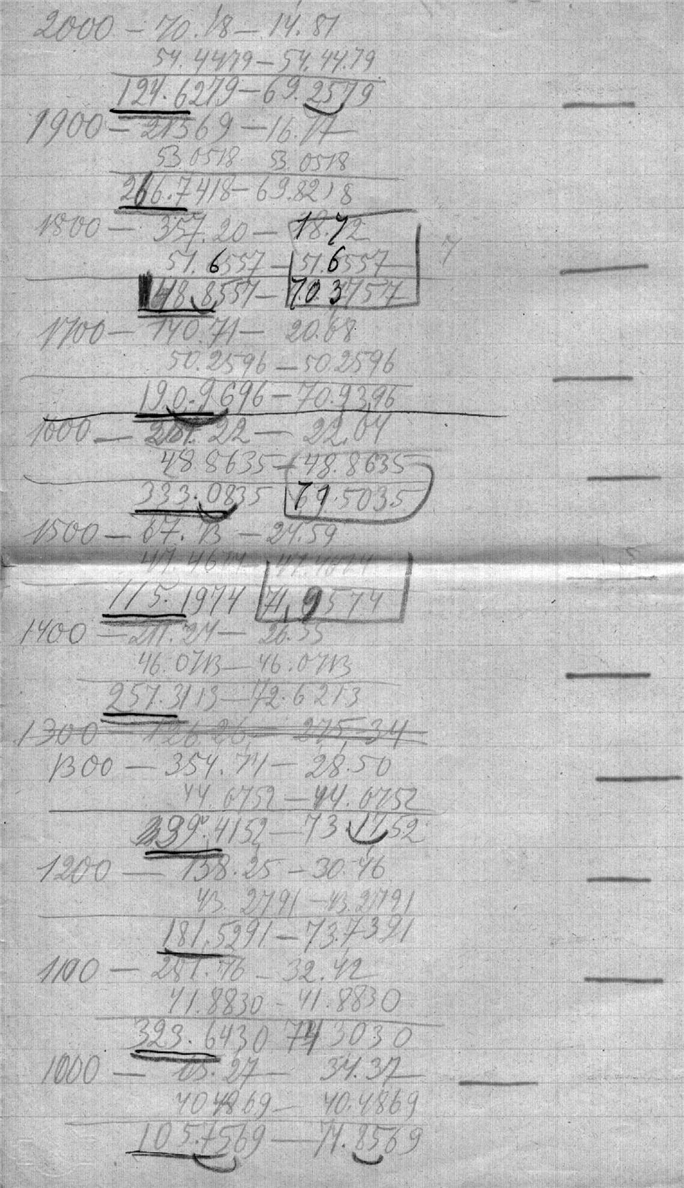 2000 – 70.18 – 14.81
54.4479 – 54.44.79
124.6279 – 69.2579
1900 – 21369 – 16.17
53.0518 53.0518
266.7418 – 69.8218
1800 – 357.20 – 18.72
51.6557 – 51.6557
48.8557 – 70.3757
1700 – 140.71 – 20.68
50.2596 – 50.2596
190.9696 – 70.9396
22.04
48.8635 – 48.8635
333.0835 79.5035
1500 – 67.73 – 24.59
115.1974 71,9574
1400 – 211.24 – 26.55
46.0713 – 46.0713
257.3113 – 72.6213
1300 – 354.74 – 28.50
44.6752 – 44.6752
339.4152 – 73.1752
1200 – 138.25 – 30.46
43.2791 – 43.2791
181.5291 – 73.7391
1100 – 281.76 – 32.42
41.8830 – 41.8830
323.6430 743030
1000 – 65.27 – 34.37
404869 – 40.4869
105.7569 – 74.8569